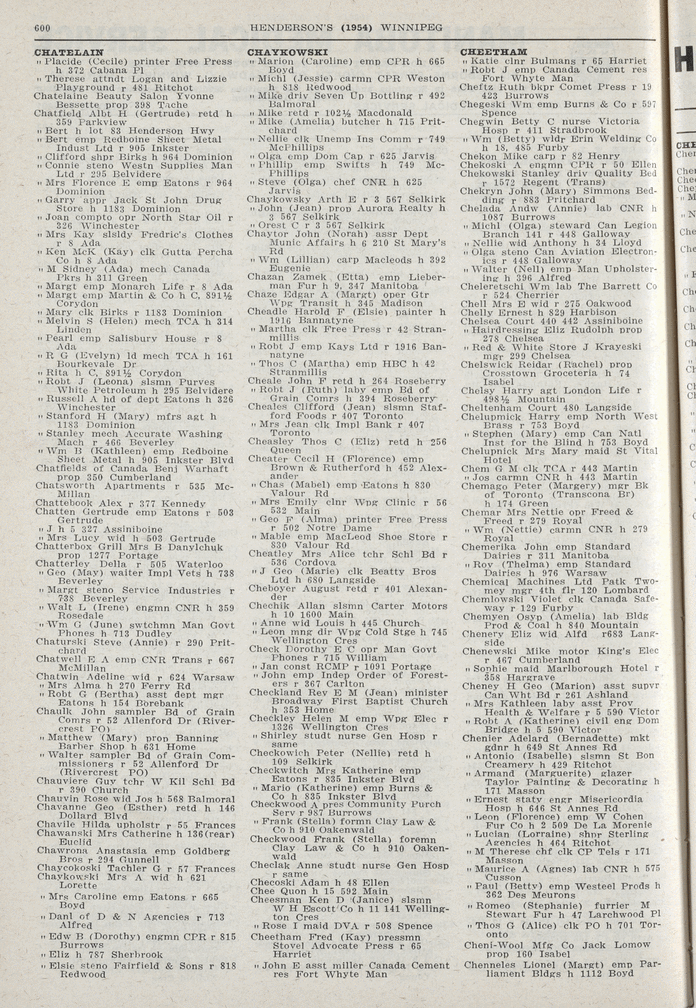 600
HENDERSON'S (1954) WINNIPEG
CHATELAIN
" Placide (Cecile) printer Free Press
h 372 Cabana Pl
" Therese attndt Logan and Lizzie
Playground r 481 Ritchot
Chatelaine Beauty Salon Yvonne
Bessette prop 398 Tache
Chatfield Albt H (Gertrude) retd h
359 Parkview
" Bert h lot 83 Henderson Hwy
" Bert emp Redboine Sheet Metal
Indust Ltd r 905 Inkster
" Clifford shpr Birks h 964 Dominion
" Connie steno Westn Supplies Man
Ltd r 295 Belvidere
" Mrs Florence E emp Eatons r 964
Dominion
" Garry appr Jack St John Drug
Store h 1183 Dominion
" Joan compto opr North Star Oil r
326 Winchester
" Mrs Kay slsldy Fredric's Clothes
r 8 Ada
" Ken McK (Kay) clk Gutta Percha
Co h 8 Ada
" M Sidney (Ada) mech Canada
Pkrs h 311 Green
" Margt emp Monarch Life r 8 Ada
" Margt emp Martin & Co h C, 891½
Corydon
" Mary clk Birks r 1183 Dominion
" Melvin S (Helen) mech TCA h 314
Linden
" Pearl emp Salisbury House r 8
Ada
" R G (Evelyn) ld mech TCA h 161
Bourkevale Dr
" Rita h C, 891½ Corydon
" Robt J (Leona) slsmn Purves
White Petroleum h 295 Belvidere
" Russell A hd of dept Eatons h 326
Winchester
" Stanford H (Mary) mfrs agt h
1183 Dominion
" Stanley mech Accurate Washing
Mach r 466 Beverley
" Wm B (Kathleen) emp Redboine
Sheet Metal h 905 Inkster Blvd
Chatfields of Canada Benj Warhaft
prop 350 Cumberland
Chatsworth Apartments r 535 Mc-
Millan
Chattebook Alex r 377 Kennedy
Chatten Gertrude emp Eatons r 503
Gertrude
" J h 5 327 Assiniboine
" Mrs Lucy wid h 503 Gertrude
Chatterbox Grill Mrs B Danylchuk
prop 1277 Portage
Chatterley Della r 505 Waterloo
" Geo (May) waiter Impl Vets h 738
Beverley
" Margt steno Service Industries r
738 Beverley
" Walt L (Irene) engmn CNR h 359
Rosedale
" Wm G (June) swtchmn Man Govt
Phones h 713 Dudley
Chaturski Steve (Annie) r 290 Prit-
chard
Chatwell E A emp CNR Trans r 667
McMillan
Chatwin Adeline wid r 624 Warsaw
" Mrs Alma h 270 Ferry Rd
" Robt G (Bertha) asst dept mgr
Eatons h 154 Borebank
Chaulk John sampler Bd of Grain
Comrs r 52 Allenford Dr (River-
crest PO)
" Matthew (Mary) prop Banning
Barber Shop h 631 Home
" Walter sampler Bd of Grain Com-
missioners r 52 Allenford Dr
(Rivercrest PO)
Chauviere Guy tchr W Kil Schl Bd
r 390 Church
Chauvin Rose wid Jos h 568 Balmoral
Chavanne Geo (Esther) retd h 146
Dollard Blvd
Chavile Hilda upholstr r 55 Frances
Chawanski Mrs Catherine h 136(rear)
Euclid
Chawrona Anastasia emp Goldberg
Bros r 294 Gunnell
Chaycokoski Tachler G r 57 Frances
Chaykowski Mrs A wid h 621
Lorette
" Mrs Caroline emp Eatons r 665
Boyd
" Danl of D & N Agencies r 713
Alfred
" Edw B (Dorothy) engmn CPR r 815
Burrows
" Eliz h 787 Sherbrook
" Elsie steno Fairfield & Sons r 818
Redwood
CHAYKOWSKI
" Marion (Caroline) emp CPR h 665
Boyd
" Michl (Jessie) carmn CPR Weston
h 818 Redwood
" Mike driv Seven Up Bottling r 492
Balmoral
" Mike retd r 102½ Macdonald
" Mike (Amelia) butcher h 715 Prit-
chard
" Nellie clk Unemp Ins Comm r 749
McPhillips
" Olga emp Dom Cap r 625 Jarvis
" Phillip emp Swifts h 749 Mc-
Phillips
" Steve (Olga) chef CNR h 625
Jarvis
Chaykowsky Arth E r 3 567 Selkirk
" John (Jean) prop Aurora Realty h
3 567 Selkirk
" Orest C r 3 567 Selkirk
Chaytor John (Norah) assr Dept
Munic Affairs h 6 210 St Mary's
Rd
" Wm (Lillian) carp Macleods h 392
Eugenie
Chazan Zamek (Etta) emp Lieber-
man Fur h 9, 347 Manitoba
Chaze Edgar A (Margt) oper Gtr
Wpg Transit h 345 Madison
Cheadle Harold F (Elsie) painter h
1916 Bannatyne
" Martha clk Free Press r 42 Stran-
millis
" Robt J emp Kays Ltd r 1916 Ban-
natyne
" Thos C (Martha) emp HBC h 42
Stranmillis
Cheale John F retd h 264 Roseberry
" Robt J (Ruth) laby emp Bd of
Grain Comrs h 394 Roseberry
Cheales Clifford (Jean) slsmn Staf-
ford Foods r 407 Toronto
" Mrs Jean clk Impl Bank r 407
Toronto
Cheasley Thos C (Eliz) retd h 256
Queen
Cheater Cecil H (Florence) emp
Brown & Rutherford h 452 Alex-
ander
" Chas (Mabel) emp Eatons h 830
Valour Rd
" Mrs Emily clnr Wpg Clinic r 56
532 Main
" Geo F (Alma) printer Free Press
r 502 Notre Dame
" Mable emp MacLeod Shoe Store r
830 Valour Rd
Cheatley Mrs Alice tchr Schl Bd r
536 Cordova
" J Geo (Marie) clk Beatty Bros
Ltd h 680 Langside
Cheboyer August retd r 401 Alexan-
der
Chechik Allan slsmn Carter Motors
h 10 1600 Main
" Anne wid Louis h 445 Church
" Leon mng dir Wpg Cold Stge h 745
Wellington Cres
Check Dorothy E C opr Man Govt
Phones r 715 William
" Jan const RCMP r 1091 Portage
" John emp Indep Order of Forest-
ers r 367 Carlton
Checkland Rev E M (Jean) minister
Broadway First Baptist Church
h 353 Home
Checkley Helen M emp Wpg Elec r
1326 Wellington Cres
" Shirley studt nurse Gen Hosp r
same
Checkowich Peter (Nellie) retd h
109 Selkirk
Checkwitch Mrs Katherine emp
Eatons r 835 Inkster Blvd
" Mario (Katherine) emp Burns &
Co h 835 Inkster Blvd
Checkwood A pres Community Purch
Serv r 987 Burrows
" Frank (Stella) formn Clay Law &
Co h 910 Oakenwald
Checkwood Frank (Stella) foremn
Clay Law & Co r 910 Oaken-
wald
Checlak Anne studt nurse Gen Hosp
r same
Checoski Adam h 48 Ellen
Chee Quon h 15 592 Main
Cheesman Ken D (Janice) slsmn
W H Escott Co h 11 141 Welling-
ton Cres
" Rose I maid DVA r 508 Spence
Cheetham Fred (Kay) pressmn
Stovel Advocate Press r 65
Harriet
" John E asst miller Canada Cement
res Fort Whyte Man
CHEETHAM
" Katie clnr Bulmans r 65 Harriet
" Robt J emp Canada Cement res
Fort Whyte Man
Cheftz Ruth bkpr Comet Press r 19
423 Burrows
Chegeski Wm emp Burns & Co r 597
Spence
Chegwin Betty C nurse Victoria
Hosp r 411 Stradbrook
" Wm (Betty) wldr Erin Welding Co
h 18, 485 Furby
Chekon Mike carp r 82 Henry
Chekoski A engmn CPR r 50 Ellen
Chekowski Stanley driv Quality Bed
r 1572 Regent (Trans)
Chekryn John (Mary) Simmons Bed-
ding r 883 Pritchard
Chelada Andw (Annie) lab CNR h
1087 Burrows
" Michl (Olga) steward Can Legion
Branch 141 r 448 Galloway
" Nellie wid Anthony h 34 Lloyd
" Olga steno Can Aviation Electron-
ics r 448 Galloway
" Walter (Nell) emp Man Upholster-
ing h 396 Alfred
Cheleretschi Wm lab The Barrett Co
r 524 Cherrier
Chell Mrs E wid r 275 Oakwood
Chelly Ernest h 829 Harbison
Chelsea Court 440 442 Assiniboine
" Hairdressing Eliz Rudolph prop
278 Chelsea
" Red & White Store J Krayeski
mgr 299 Chelsea
Chelswick Reidar (Rachel) prop
Crosstown Groceteria h 74
Isabel
Chelsy Harry agt London Life r
498½ Mountain
Cheltenham Court 480 Langside
Chelupnick Harry emp North West
Brass r 753 Boyd
" Stephen (Mary) emp Can Natl
Inst for the Blind h 753 Boyd
Chelupnick Mrs Mary maid St Vital
Hotel
Chem G M clk TCA r 443 Martin
" Jos carmn CNR h 443 Martin
Chemago Peter (Margery) mgr Bk
of Toronto (Transcona Br)
h 174 Green
Chemar Mrs Nettie opr Freed &
Freed r 279 Royal
" Wm (Nettie) carmn CNR h 279
Royal
Chemerika John emp Standard
Dairies r 311 Manitoba
" Roy (Thelma) emp Standard
Dairies h 976 Warsaw
Chemical Machines Ltd Patk Two-
mey mgr 4th flr 120 Lombard
Chemlowski Violet clk Canada Safe-
way r 129 Furby
Chemyen Osyp (Amelia) lab Bldg
Prod & Coal h 840 Mountain
Chenery Eliz wid Alfd r683 Lang-
side
Chenewski Mike motor King's Elec
r 467 Cumberland
" Sophie maid Marlborough Hotel r
358 Hargrave
Cheney H Geo (Marion) asst supvr
Can Wht Bd r 261 Ashland
" Mrs Kathleen laby asst Prov
Health & Welfare r 5 590 Victor
" Robt A (Katherine) civil eng Dom
Bridge h 5 590 Victor
Chenier Adelard (Bernadette) mkt
gdnr h 649 St Annes Rd
" Antonio (Isabelle) slsmn St Bon
Creamery h 429 Ritchot
" Armand (Marguerite) glazer
Taylor Painting & Decorating h
171 Masson
" Ernest statv engr Misericordia
Hosp h 646 St Annes Rd
" Leon (Florence) emp W Cohen
Fur Co h 2 509 De La Morenie
" Lucian (Lorraine) shpr Sterling
Agencies h 464 Ritchot
" M Therese chf clk CP Tels r 171
Masson
" Maurice A (Agnes) lab CNR h 575
Cusson
" Paul (Betty) emp Westeel Prods h
362 Des Meurons
" Romeo (Stephanie) furrier M
Stewart Fur h 47 Larchwood Pl
" Thos G (Alice) clk PO h 701 Tor-
onto
Cheni-Wool Mfg Co Jack Lomow
prop 160 Isabel
Chenneles Lionel (Margt) emp Par-
liament Bldgs h 1112 Boyd